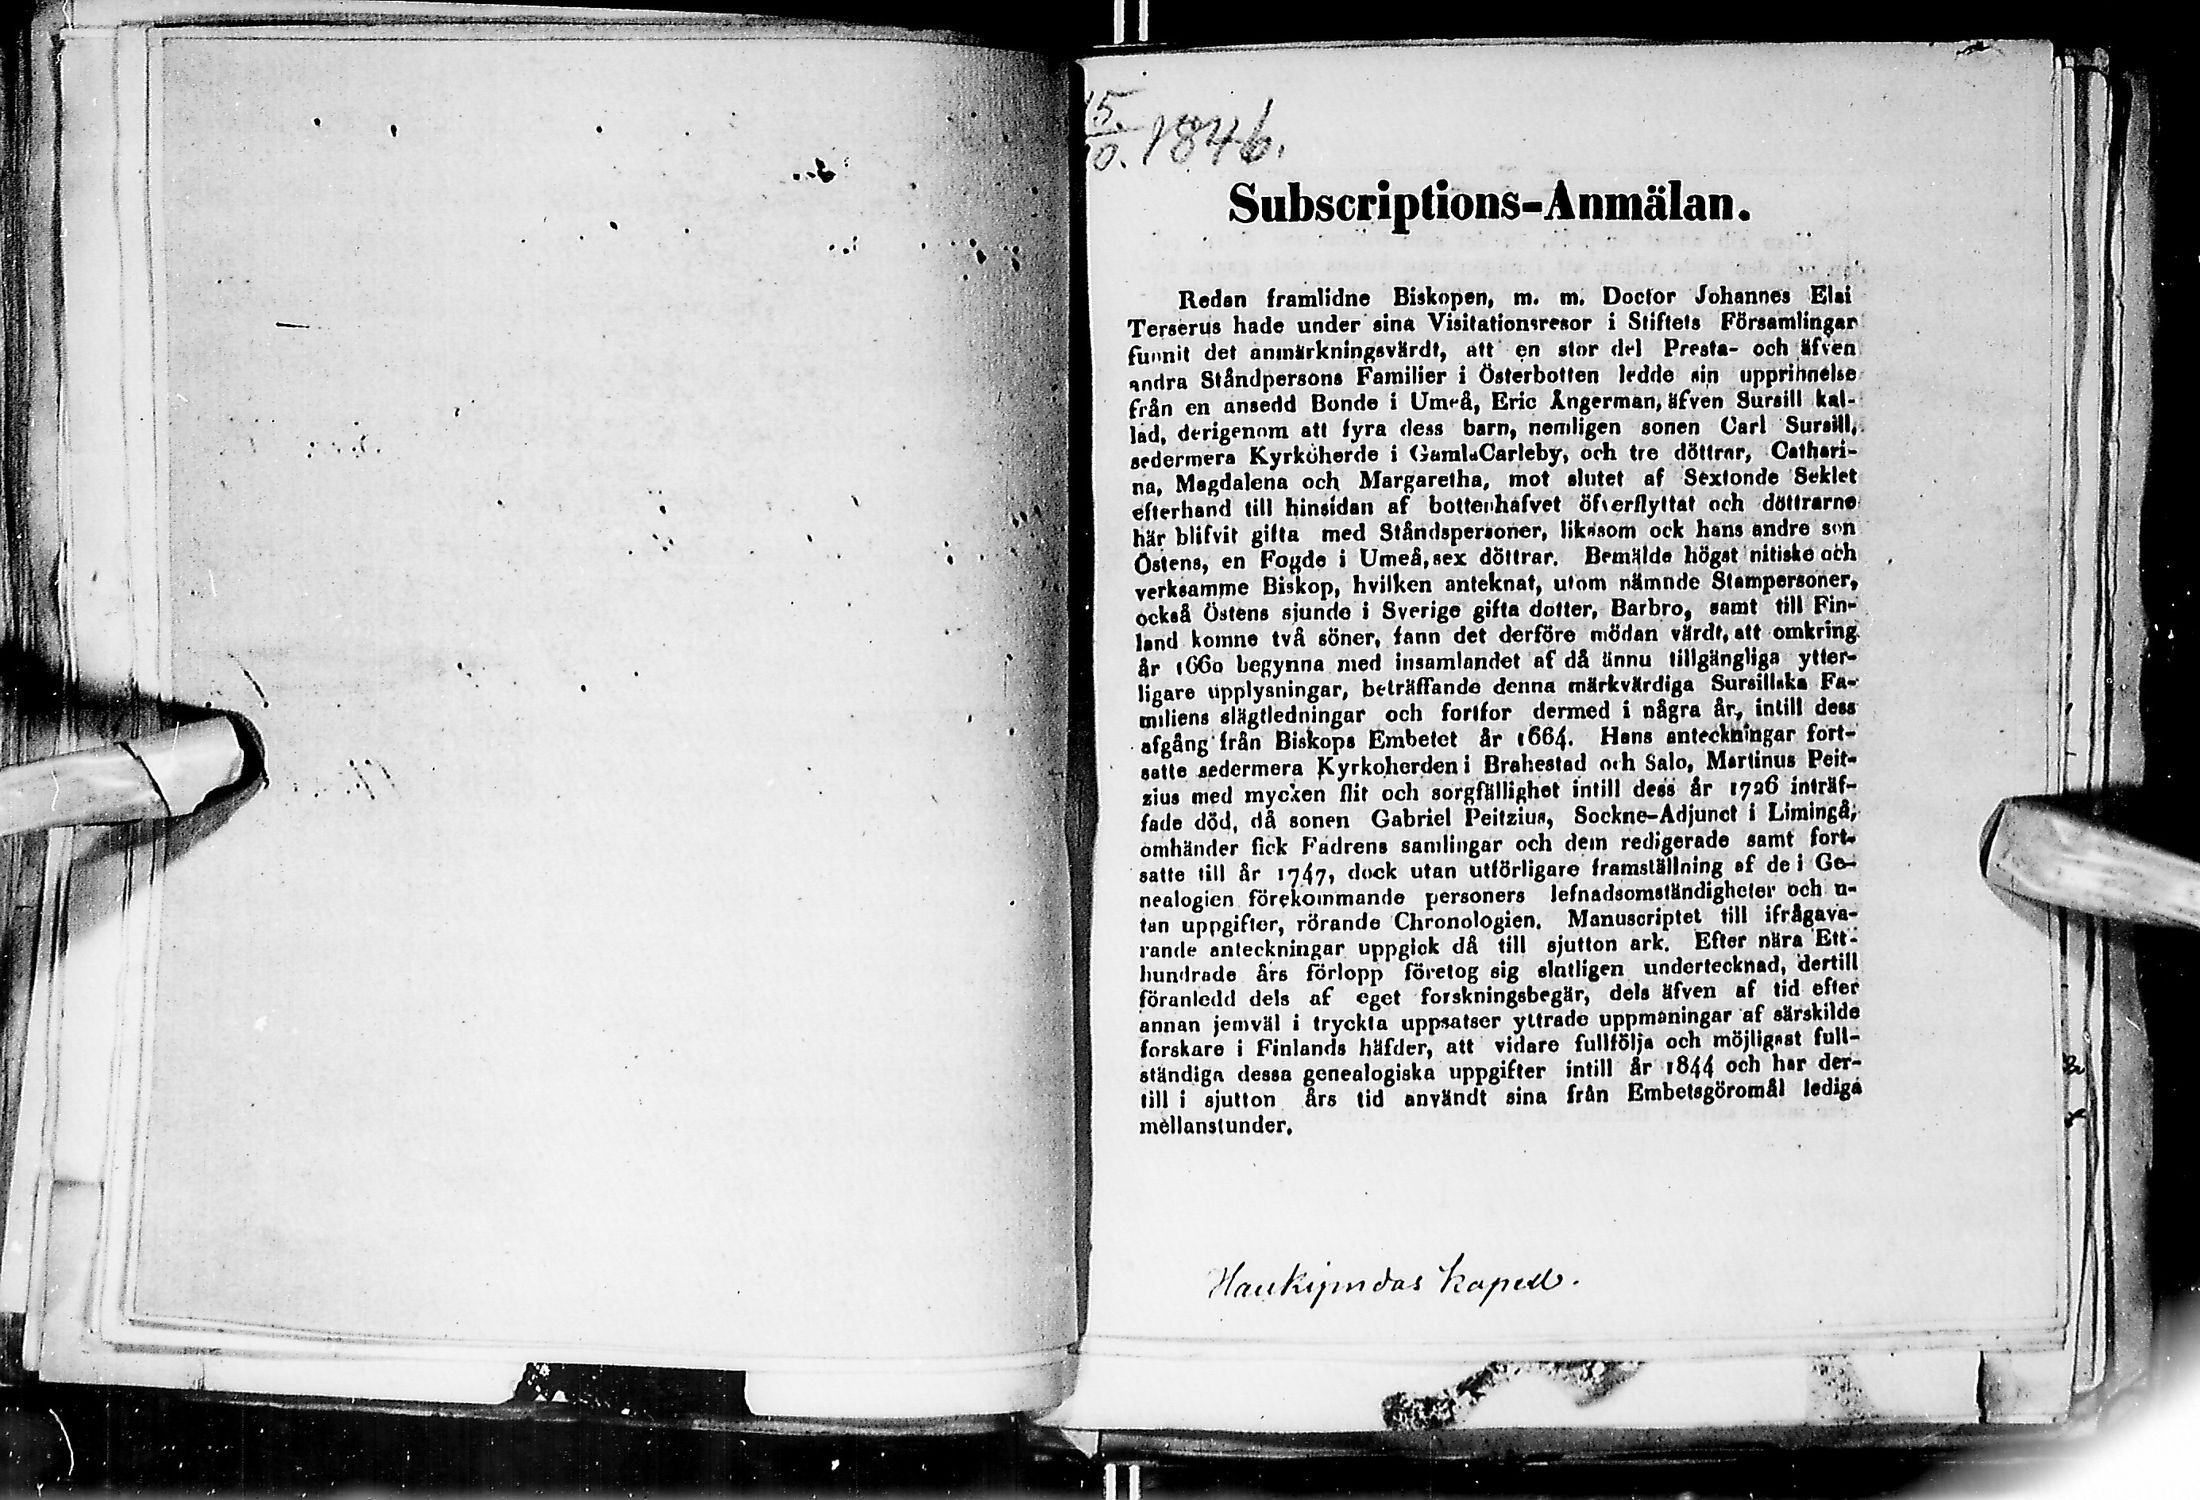 15.
10. 1846.
Subscriptions-Anmälan.
Redan framlidne Biskopen, m. m. Doctor Johannes Elai
Terserus hade under sina Visitationsresor i Stiftets Församlingar
funnit det anmärkningsvärdt, att en stor del Presta- och äfven
andra Ståndpersons Familier i Österbotten ledde sin upprinnelse
från en ansedd Bonde i Umeå, Eric Ångerman, äfven Sursill kal-
lad, derigenom att fyra dess barn, nemligen sonen Carl Sursill,
sedermera Kyrkoherde i GamlaCarleby, och tre döttrar, Cathari-
na, Magdalena och Margaretha, mot slutet af Sextonde Seklet
efterhand till hinsidan af bottenhafvet öfverflyttat och döttrarne
här blifvit gifta med Ståndspersoner, likasom ock hans andre son
Östens, en Fogde i Umeå, sex döttrar. Bemälde högst nitiske och
verksamme Biskop, hvilken anteknat, utom nämnde Stampersoner,
också Östens sjunde i Sverige gifta dotter, Barbro, samt till Fin-
land komne två söner, fann det derföre mödan värdt, att omkring
år 1660 begynna med insamlandet af då ännu tillgängliga ytter-
ligare upplysningar, beträffande denna märkvärdiga Sursillska Fa-
miliens slägtledningar och fortfor dermed i några år, intill dess
afgång från Biskops Embetet år 1664. Hans anteckningar fort-
satte sedermera Kyrkoherden i Brahestad och Salo, Martinus Peit-
zius med mycken flit och sorgfällighet intill dess år 1726 inträf-
fade död, då sonen Gabriel Peitzius, Sockne-Adjunct i Limingå,
omhänder fick Fadrens samlingar och dem redigerade samt fort-
satte till år 1747, dock utan utförligare framställning af de i Ge-
nealogien förekommande personers lefnadsomständigheter och u-
tan uppgifter, rörande Chronologien. Manuscriptet till ifrågava-
rande anteckningar uppgick då till sjutton ark. Efter nära Ett-
hundrade års förlopp företog sig slutligen undertecknad, dertill
föranledd dels af eget forskningsbegär, dels äfven af tid efter
annan jemväl i tryckta uppsatser yttrade uppmaningar af särskilde
forskare i Finlands häfder, att vidare fullfölja och möjligast full-
ständiga dessa genealogiska uppgifter intill år 1844 och har der-
till i sjutton års tid användt sina från Embetsgöromål lediga
mellanstunder.
Haukipudas kapell.